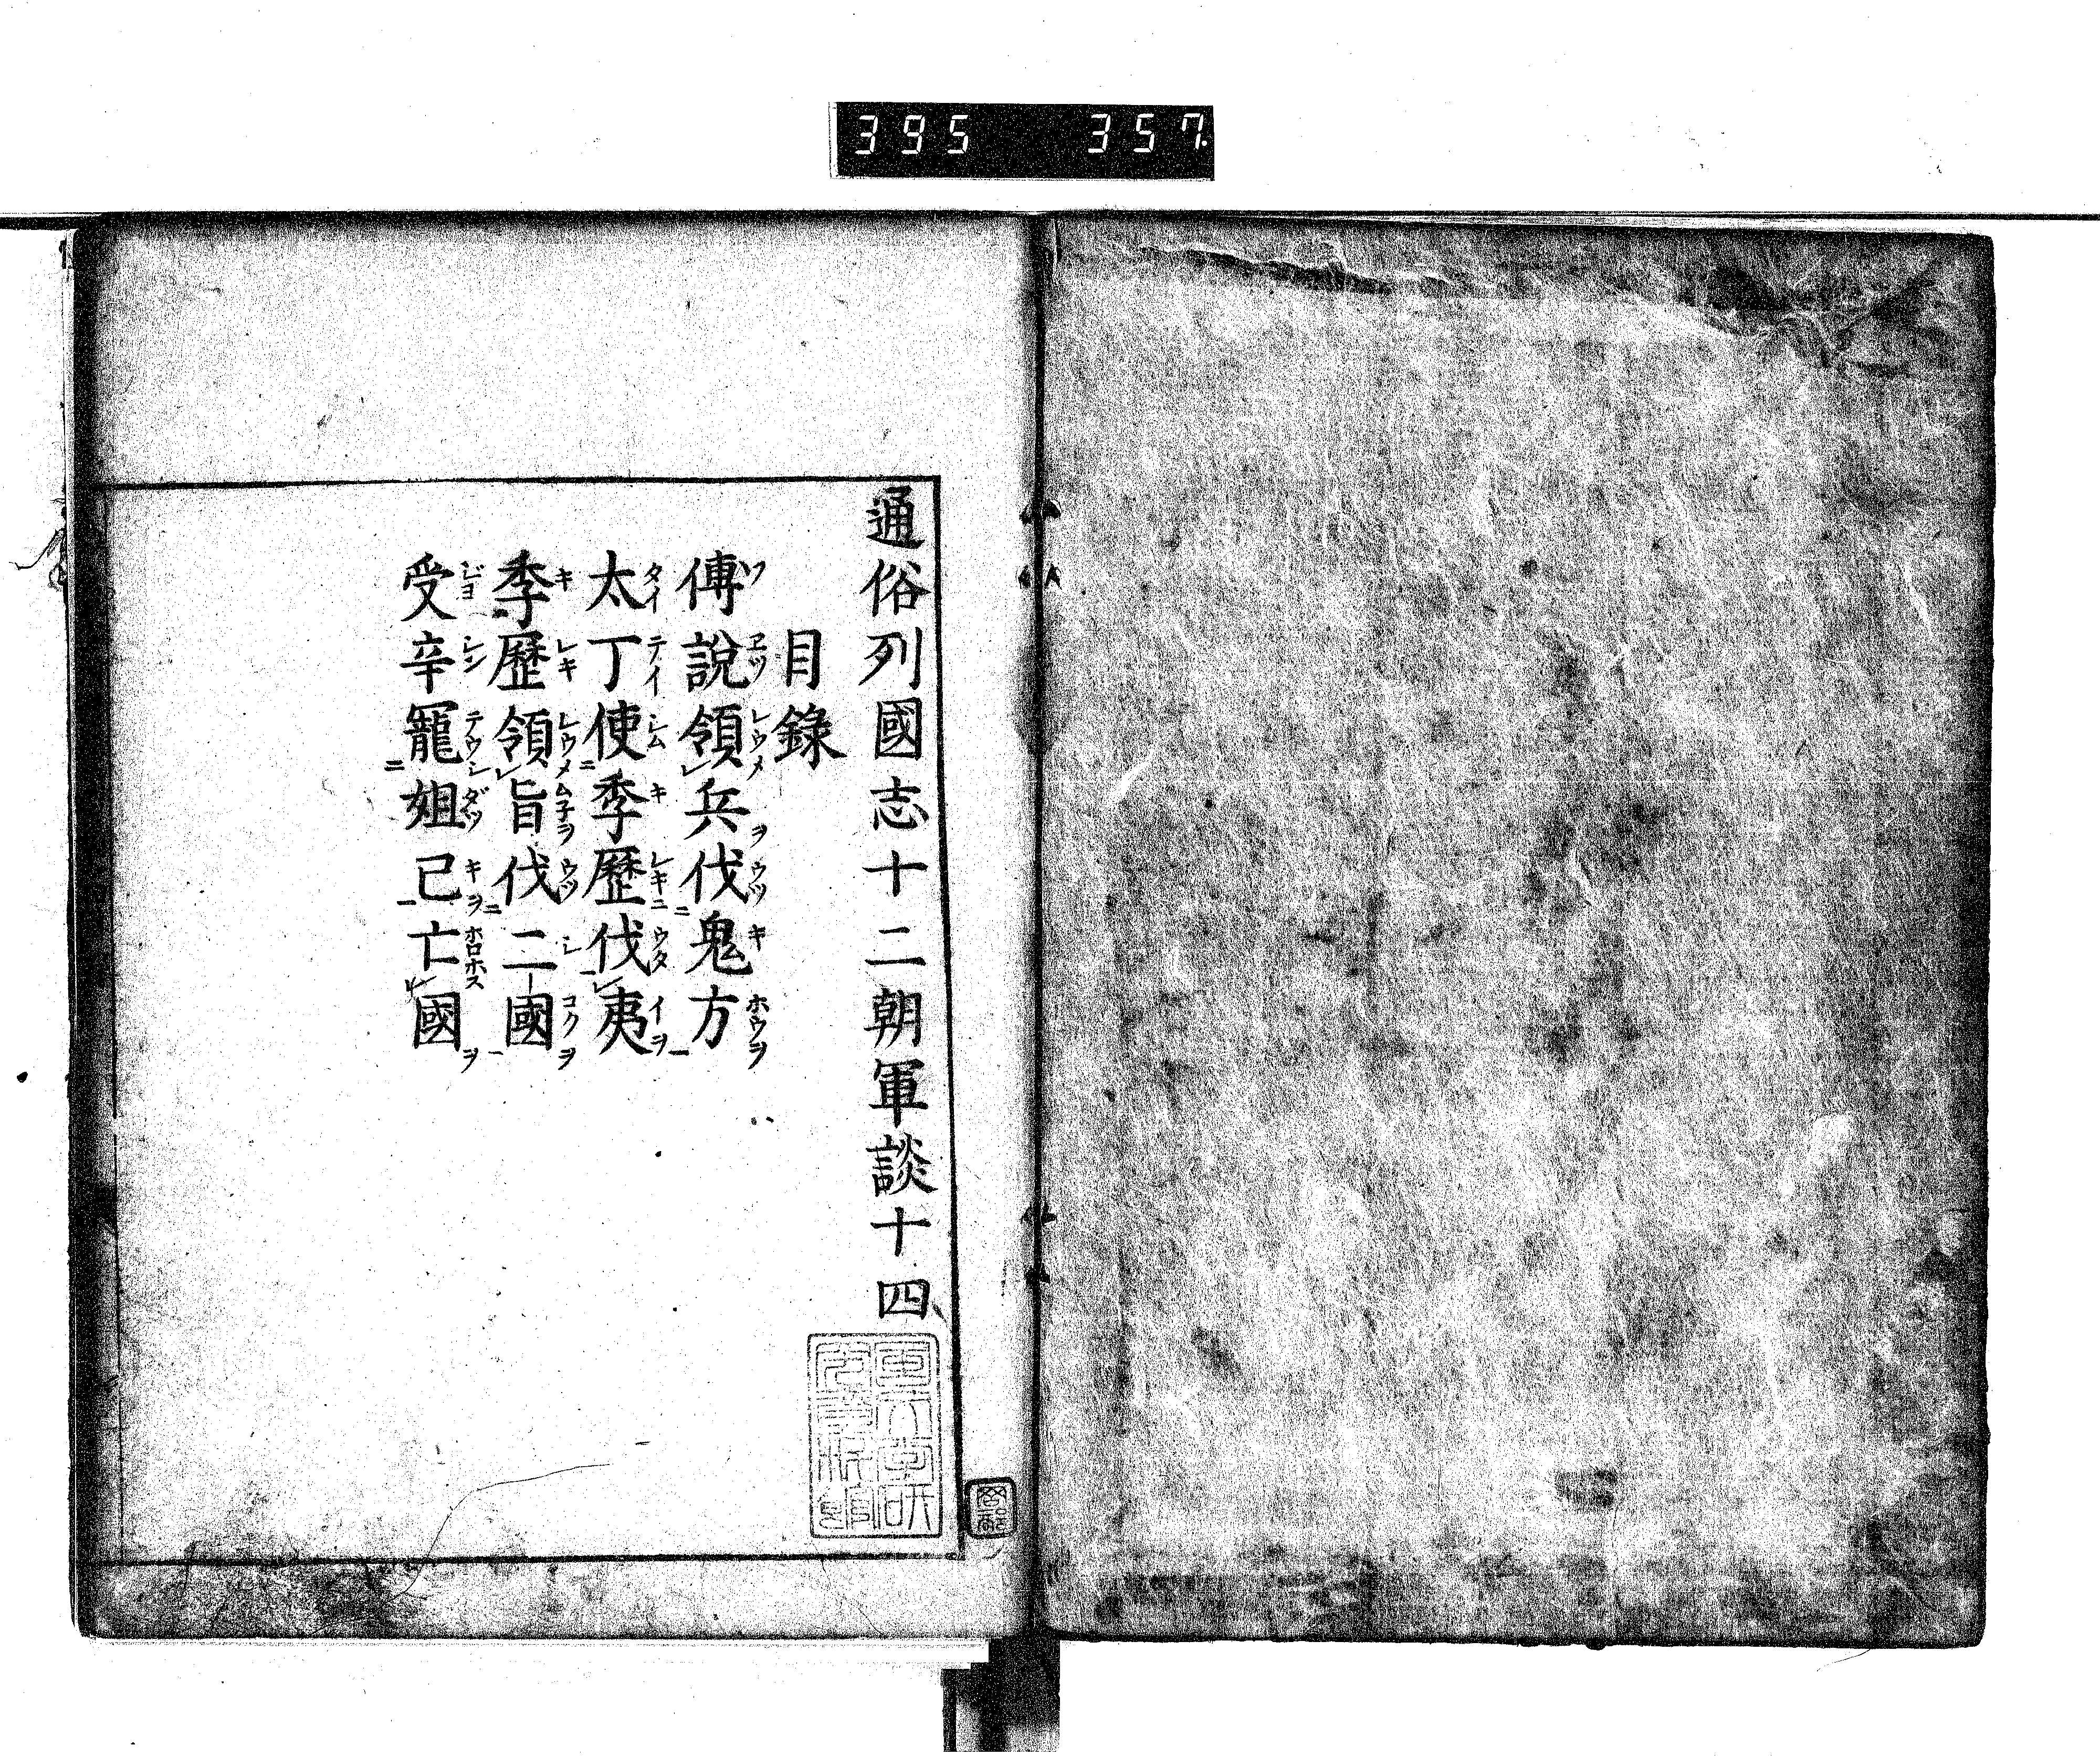 395 357
通俗列國志十二朝軍談十四
目錄
傅說領兵伐鬼方
太丁使季歷伐夷
季歷領旨伐二國
受辛寵妲己亡國